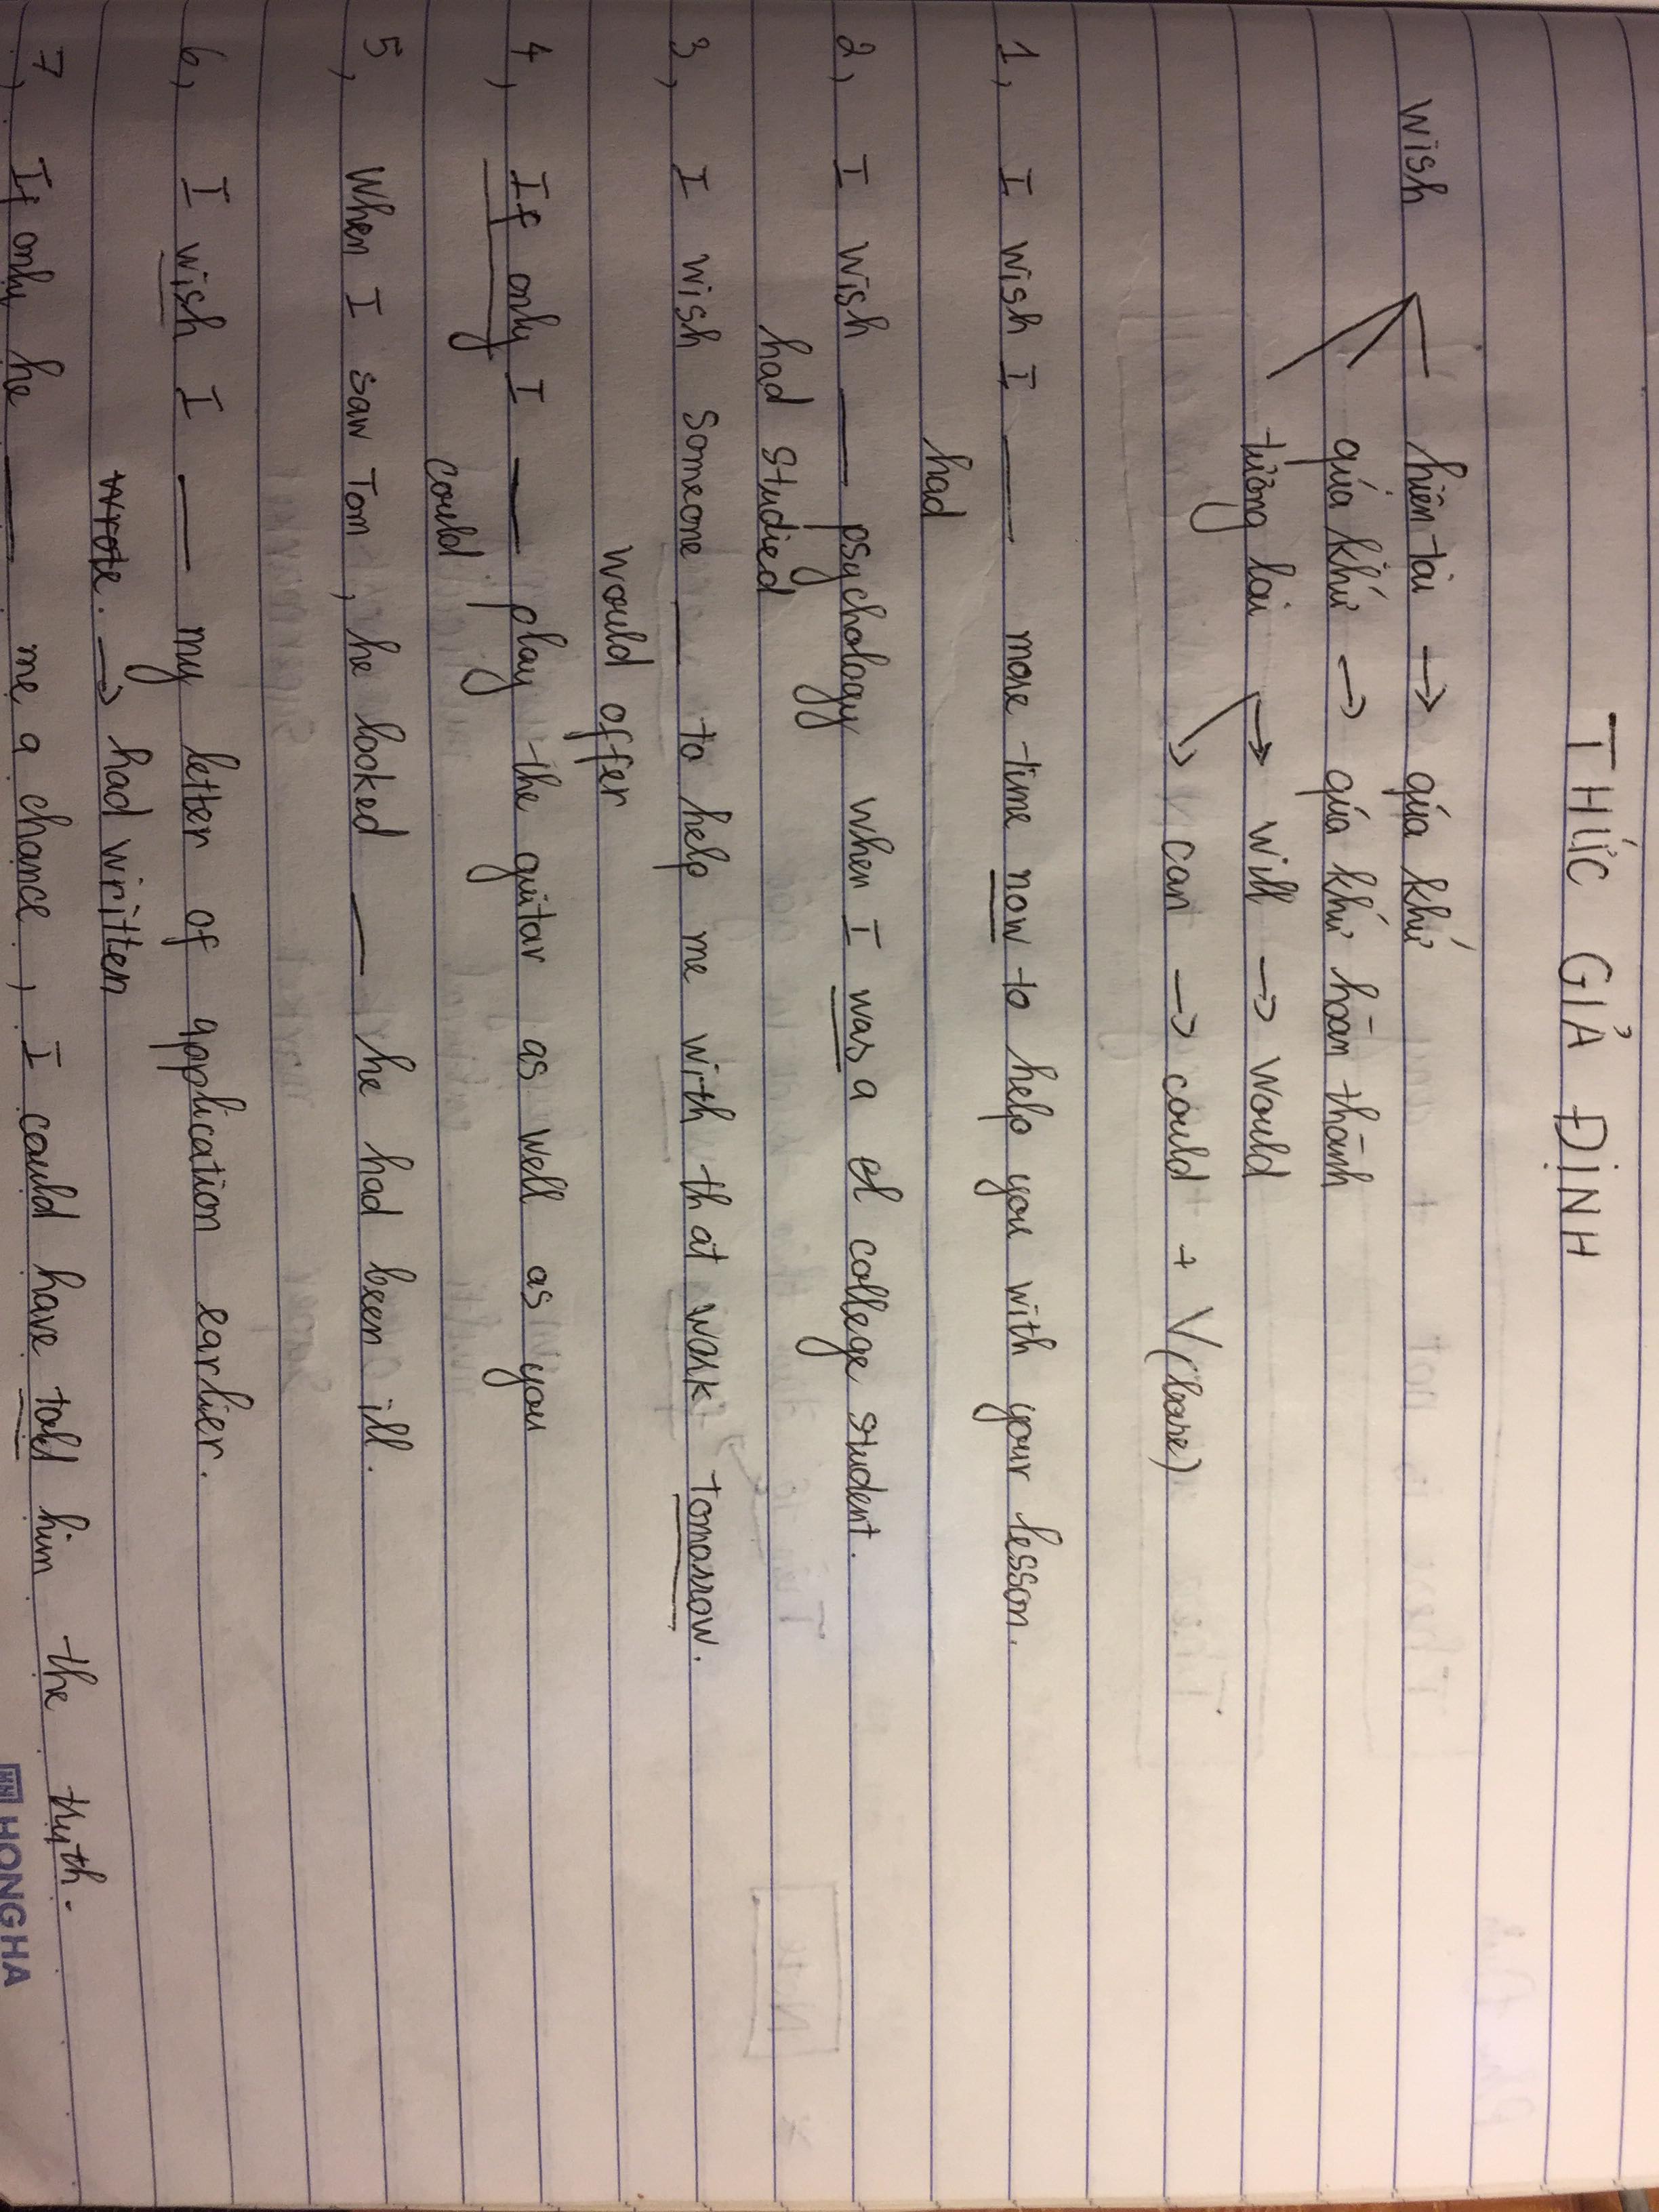 THỨC GIẢ ĐỊNH
wish hiện tại → qúa khứ
qúa khứ → qúa khứ hoàn thành
tương lai → will → would
→ can → could + V (bare)
1, I wish I ___ more time now to help you with your lesson.
had
2, I wish ___ psychology when I was a college student.
had studied
3, I wish someone ___ to help me with that work tomorrow.
would offer
4, If only I ___ play the guitar as well as you
could
5, When I saw Tom, he looked ___ he had been ill.
6, I wish I ___ my letter of application earlier.
wrote. → had written
7, If only he ___ me a chance, I could have told him the
HONG HA